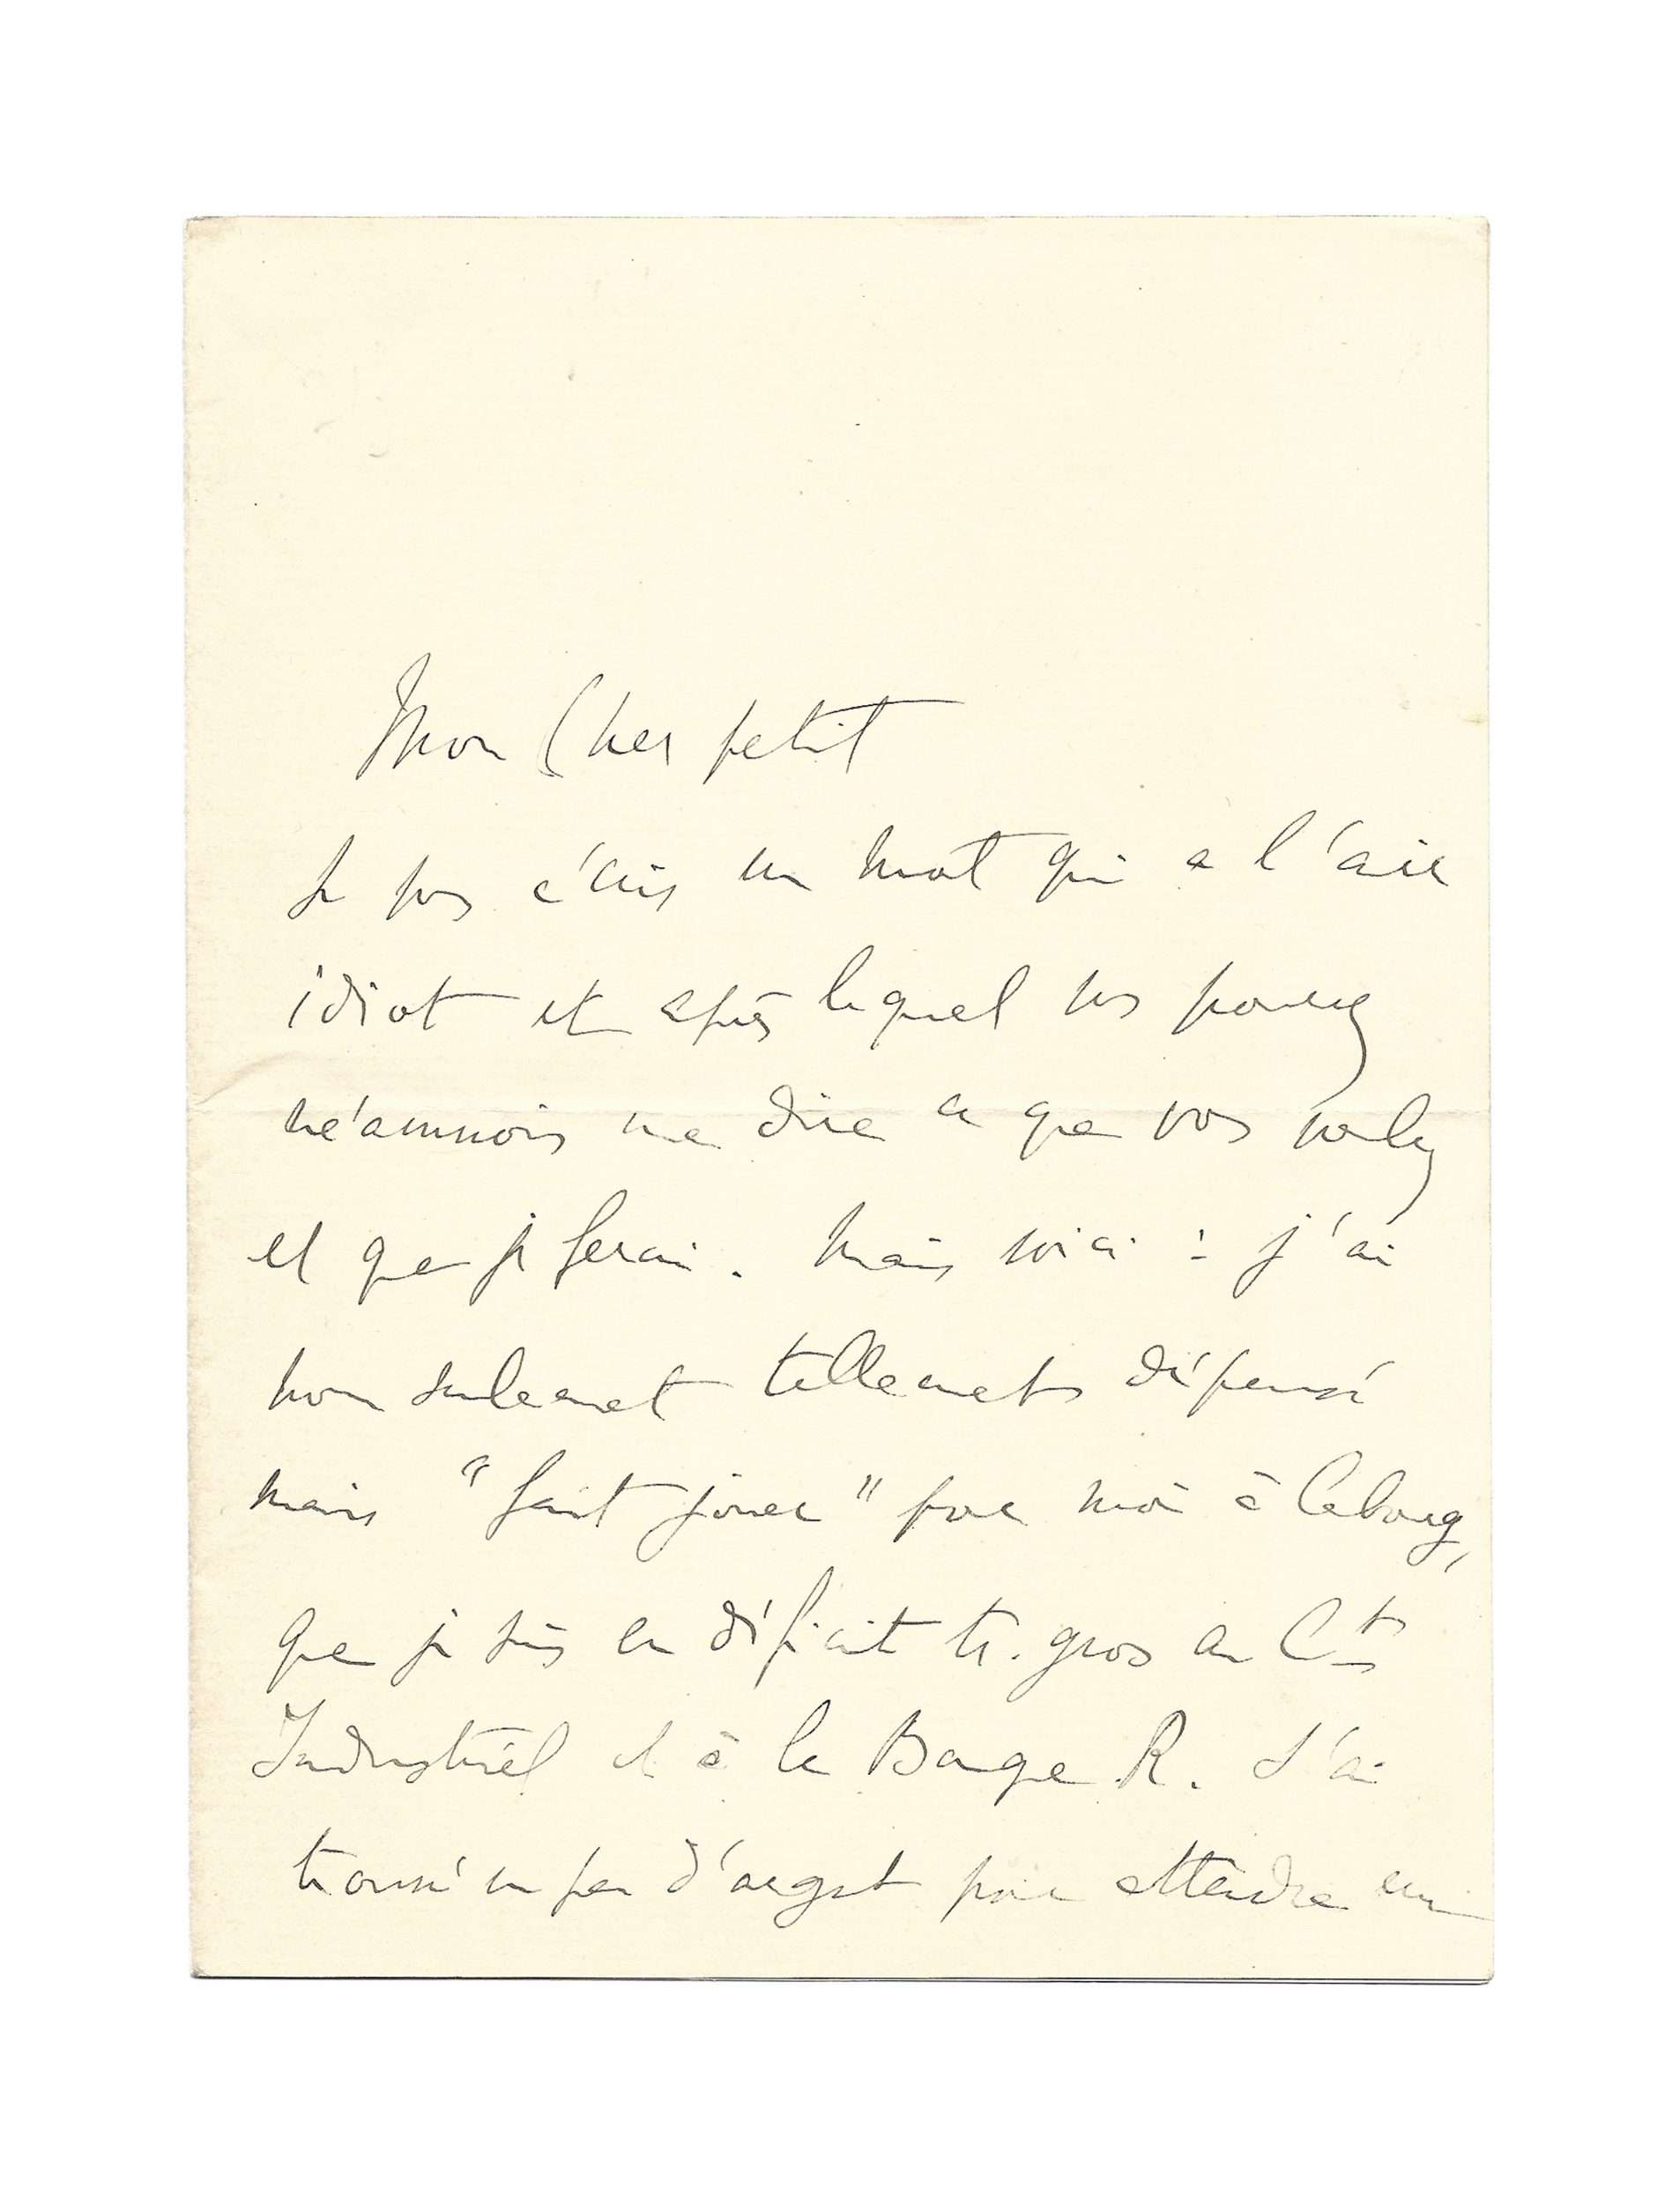 Mon Cher petit
Je vous écris un mot qui a l'air
idiot et après lequel vous pourrez
néanmoins me dire ce que vous voulez
et que je ferai. Mais voici : j'ai
non seulement tellement dépensé
mais "fait jouer" pour moi à Cabourg,
que je suis en déficit tr. gros au C^t
Industriel et à la Banque R. J'ai
trouvé un peu d'argent pour attendre un